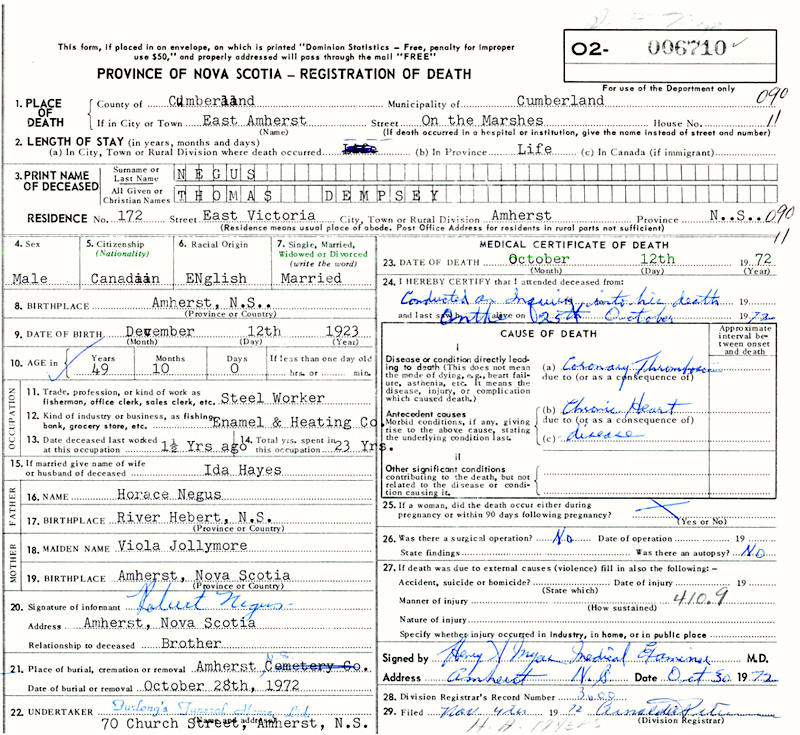 This form, if placed in an envelope, on which is printed "Dominion Statistics – Free, penalty for improper
use $50," and properly addressed will pass through the mail "FREE"
O2- 006710
PROVINCE OF NOVA SCOTIA – REGISTRATION OF DEATH
For use of the Department only
1. PLACE OF DEATH County of Cumberland Municipality of Cumberland 090
If in City or Town East Amherst Street On the Marshes House No. 11
(Name) (If death occurred in a hospital or institution, give the name instead of street and number)
2. LENGTH OF STAY (in years, months and days)
(a) In City, Town or Rural Division where death occurred Life (b) In Province Life (c) In Canada (if immigrant)
3. PRINT NAME OF DECEASED Surname or Last Name NEGUS
All Given or Christian Names THOMAS DEMPSEY
RESIDENCE No. 172 Street East Victoria City, Town or Rural Division Amherst Province N..S.. 090
(Residence means usual place of abode. Post Office Address for residents in rural parts not sufficient) 11
4. Sex Male
5. Citizenship (Nationality) Canadian
6. Racial Origin ENglish
7. Single, Married, Widowed or Divorced (write the word) Married
8. BIRTHPLACE Amherst, N.S..
(Province or Country)
9. DATE OF BIRTH Devember 12th 1923
(Month) (Day) (Year)
10. AGE in Years 49 Months 10 Days 0 If less than one day old hrs. or min.
OCCUPATION
11. Trade, profession, or kind of work as fisherman, office clerk, sales clerk, etc. Steel Worker
12. Kind of industry or business, as fishing, bank, grocery store, etc. Enamel & Heating Co.
13. Date deceased last worked at this occupation 1½ Yrs ago
14. Total yrs. spent in this occupation 23 Yrs.
15. If married give name of wife or husband of deceased Ida Hayes
FATHER
16. NAME Horace Negus
17. BIRTHPLACE River Hebert, N.S.
(Province or Country)
MOTHER
18. MAIDEN NAME Viola Jollymore
19. BIRTHPLACE Amherst, Nova Scotia
(Province or Country)
20. Signature of informant Robert Negus
Address Amherst, Nova Scotia
Relationship to deceased Brother
21. Place of burial, cremation or removal Amherst N.S. Cemetery Co.
Date of burial or removal October 28th, 1972
22. UNDERTAKER Furlong's Funeral Home Ltd.
(Name and address)
70 Church Street, Amherst, N.S.
MEDICAL CERTIFICATE OF DEATH
23. DATE OF DEATH October 12th 1972
(Month) (Day) (Year)
24. I HEREBY CERTIFY that I attended deceased from:
Conducted an Inquiry into his death 19
and last saw alive on On the 25th October 1972
CAUSE OF DEATH
Approximate interval between onset and death
I
Disease or condition directly leading to death (This does not mean the mode of dying, e.g., heart failure, asthenia, etc. It means the disease, injury, or complication which caused death.)
(a) Coronary Thrombosis
due to (or as a consequence of)
Antecedent causes
Morbid conditions, if any, giving rise to the above cause, stating the underlying condition last.
(b) Chronic Heart
due to (or as a consequence of)
(c) disease
II
Other significant conditions contributing to the death, but not related to the disease or condition causing it.
25. If a woman, did the death occur either during pregnancy or within 90 days following pregnancy?
(Yes or No)
26. Was there a surgical operation? No Date of operation 19
State findings Was there an autopsy? No
27. If death was due to external causes (violence) fill in also the following: –
Accident, suicide or homicide? Date of injury 19
(State which)
Manner of injury 410.9
(How sustained)
Nature of injury
Specify whether injury occurred in industry, in home, or in public place
Signed by Medical Examiner M.D.
Address Amherst N.S. Date Oct 30 1972
28. Division Registrar's Record Number
29. Filed Nov 4th 1972
(Division Registrar)
H. A. MYERS